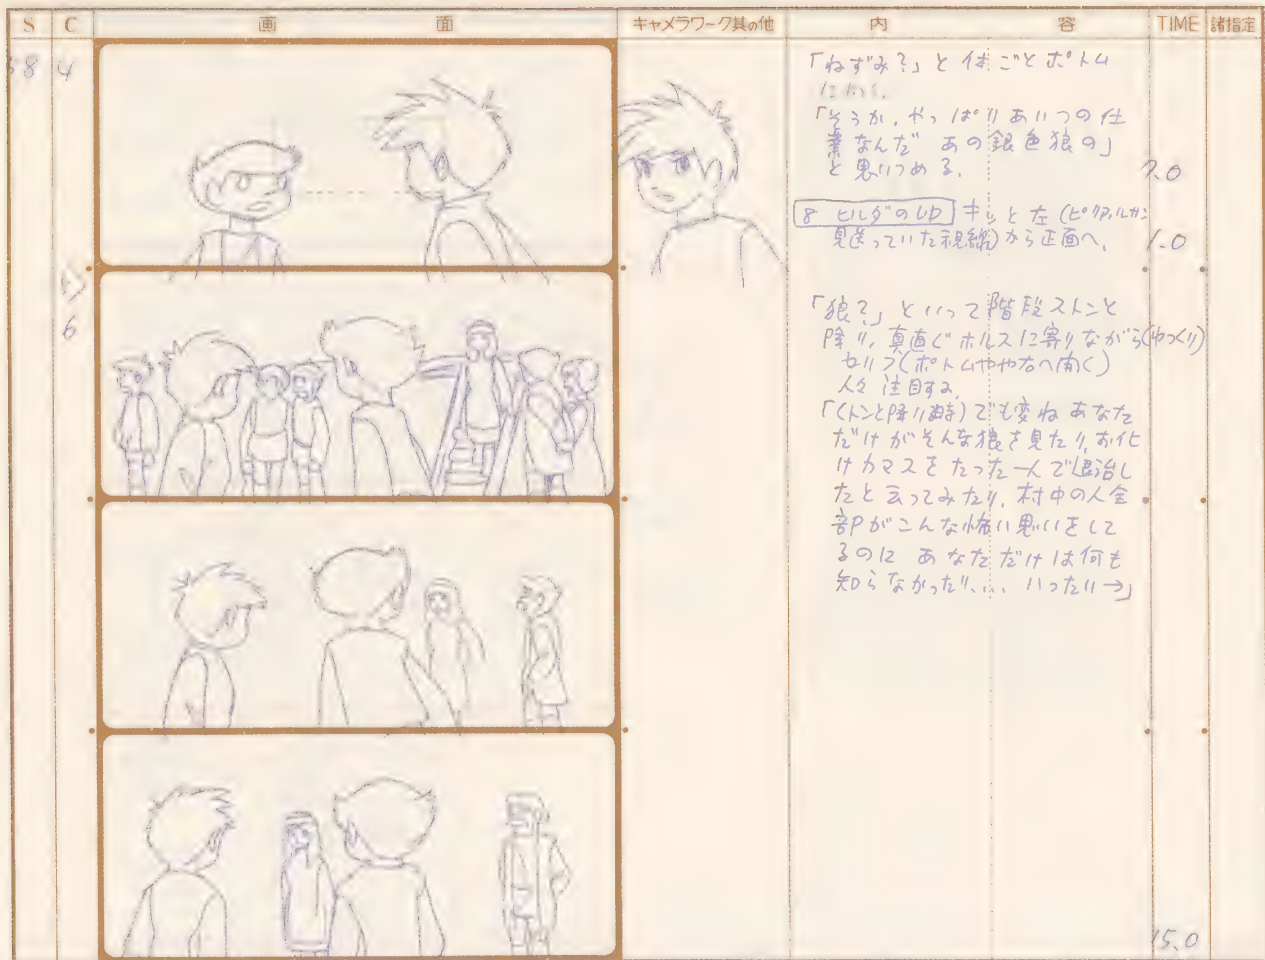 S C 画面 キャメラワーク其の他 内容 TIME 諸指定
8 4
「ねずみ？」と体ごとポトム
に
「そうか、やっぱりあいつの仕
業なんだ あの銀色狼の」
と思いつめる.
7.0
8 ヒルダのUP キッと左(ピリアルカン
見送っていた視線)から正面へ、
1.0
6
「狼？」といって階段ストンと
降り、真直ぐホルスに寄りながら(ゆっくり)
セリフ(ポトムやや右へ開く)
人々注目する
「(トンと降り時)でも変ね あなた
だけがそんな狼を見たり、お化
けカマスをたった一人で退治し
たと云ってみたり、村中の人全
部がこんな怖い思いをして
るのに あなただけは何も
知らなかったり、… いったい→」
15.0